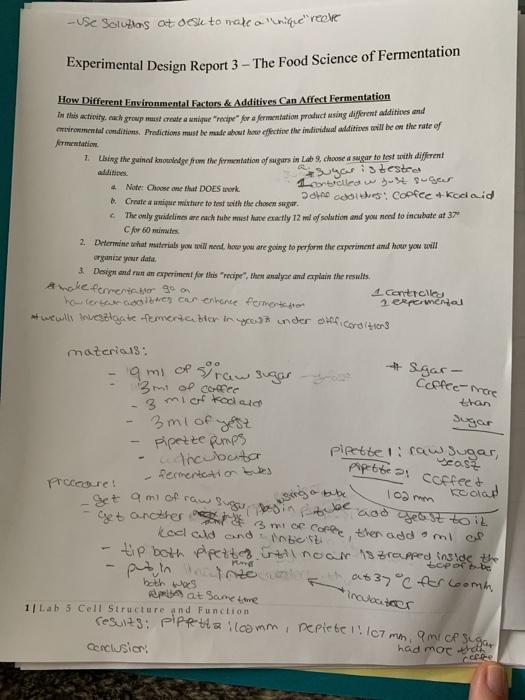 - use solutions at desk to make a "unique" recipe
Experimental Design Report 3 – The Food Science of Fermentation
How Different Environmental Factors & Additives Can Affect Fermentation
In this activity, each group must create a unique "recipe" for a fermentation product using different additives and
environmental conditions. Predictions must be made about how effective the individual additives will be on the rate of
fermentation.
1. Using the gained knowledge from the fermentation of sugars in Lab 9, choose a sugar to test with different
additives.
* sugar is tested
a. Note: Choose one that DOES work.
1 controlled w just sugar
b. Create a unique mixture to test with the chosen sugar.
2 diff additives: coffee + koolaid
c. The only guidelines are each tube must have exactly 12 ml of solution and you need to incubate at 37°
C for 60 minutes.
2. Determine what materials you will need, how you are going to perform the experiment and how you will
organize your data.
3. Design and run an experiment for this "recipe", then analyze and explain the results.
* make fermentation go on
how certain additives can enhance fermentation
1 controlled
2 experimental
* we will investigate fermentation in yeast under diff. conditions
materials:
- 9 ml of 5% raw sugar
- 3 ml of coffee
- 3 ml of koolaid
- 3 ml of yeast
- pipette pumps
- incubator
- fermentation tubes
* Sugar -
Coffee - more
than
sugar
pipette 1: raw sugar,
yeast
pipette 2: coffee +
koolaid
102 mm
Procedure:
- get 9 ml of raw sugar using a tube, add yeast to it
- get another tube 3 ml of coffee, then add ml of
kool aid and
- tip both pipettes until no air is trapped inside the
top of tube
- put in at 37 °C for 60 min,
both tubes
incubator
at same time
1 | Lab 5 Cell Structure and Function
results: pipette 2: 100 mm, pipette 1: 107 mm, 9 ml of sugar
had more than
coffee
conclusion: